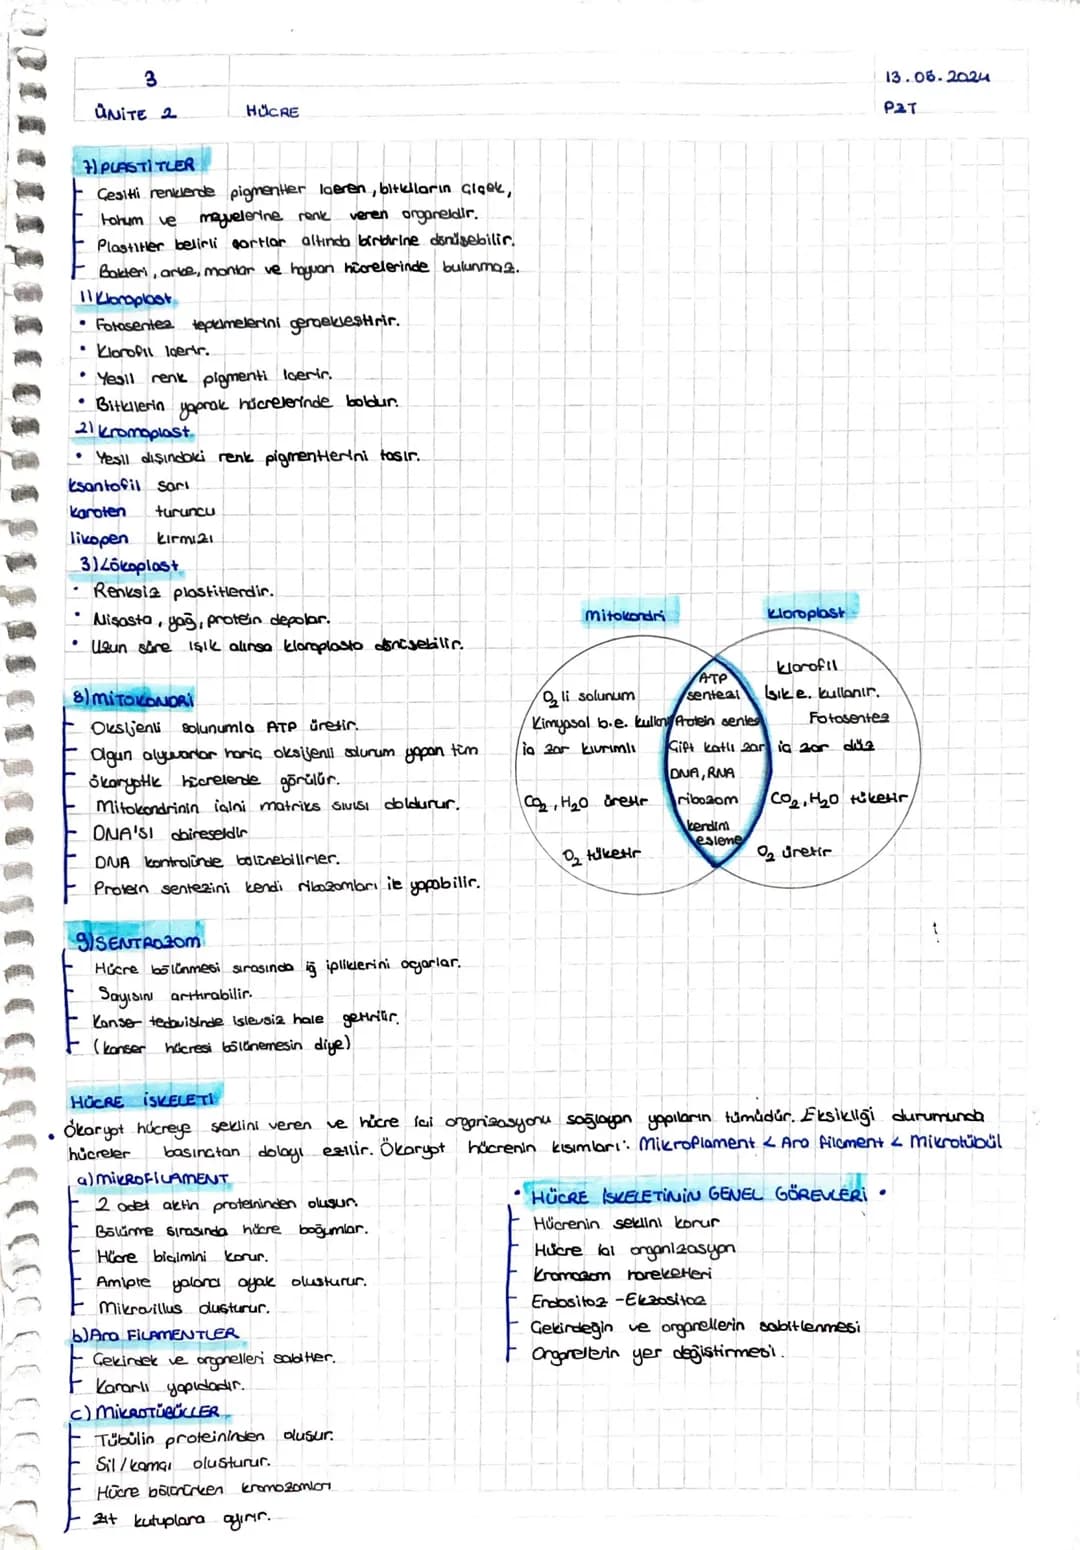 3
13.05.2024
ÜNİTE 2
HÜCRE
PZT
7) PLASTİTLER
Çeşitli renklerde pigmentler içeren, bitkilerin çiçek,
tohum ve meyvelerine renk veren organeldir.
Plastitler belirli şartlar altında birbirine dönüşebilir.
Bakteri, arke, mantar ve hayvan hücrelerinde bulunmaz.
1) Kloroplast
• Fotosentez tepkimelerini gerçekleştirir.
• Klorofil içerir.
• Yeşil renk pigmenti içerir.
• Bitkilerin yaprak hücrelerinde boldur.
2) kromoplast
• Yeşil dışındaki renk pigmentlerini taşır.
ksantofil sarı
karoten turuncu
likopen kırmızı
3) Lökoplast
• Renksiz plastitlerdir.
• Nişasta, yağ, protein depolar.
• Uzun süre ışık alırsa kloroplasta dönüşebilir.
8) MİTOKONDRİ
Oksijenli solunumla ATP üretir.
Olgun alyuvarlar hariç oksijenli solunum yapan tüm
ökaryotik hücrelerde görülür.
Mitokondrinin içini matriks sıvısı doldurur.
DNA'SI
DNA kontrolünde bölünebilirler.
Protein sentezini kendi ribozomları ile yapabilir.
Mitokondri
Kloroplast
O₂ li solunum
Kimyasal b.e. kullanır
iç zar kıvrımlı
CO₂, H₂O üretir
O₂ tüketir
ATP
sentezi
Protein sentez
Çift katlı zar
DNA, RNA
ribozom
kendini
eşleme
klorofil
Işık e. kullanır.
Fotosentez
iç zar düz
CO₂, H₂O tüketir
O₂ üretir
9) SENTROZOM
Hücre bölünmesi sırasında iğ ipliklerini
Sayısını arttırabilir.
Kanser tedavisinde işlevsiz hale getirilir.
(kanser hücresi bölünemesin diye)
HÜCRE İSKELETİ
• Ökaryot hücreye şeklini veren ve hücre içi organizasyonu sağlayan yapıların tümüdür. Eksikliği durumunda
hücreler basınçtan dolayı ezilir. Ökaryot hücrenin kısımları: Mikroflament < Ara filament < Mikrotübül
a) MİKROFİLAMENT
2 adet aktin proteininden oluşur.
Bölünme sırasında hücre boğumlar.
Hücre biçimini korur.
Amipte yalancı ayak oluşturur.
Mikrovillus oluşturur.
b) Ara FİLAMENTLER
Çekirdek ve organelleri sabitler.
Kararlı yapıdadır.
c) MİKROTÜBÜLLER
Tübülin proteininden oluşur.
Sil / kamçı oluşturur.
Hücre bölünürken kromozomları
zıt kutuplara ayırır.
• HÜCRE İSKELETİNİN GENEL GÖREVLERİ •
Hücrenin şeklini korur
Hücre içi organizasyon
Kromozom hareketleri
Endositoz - Ekzositoz
Çekirdeğin ve organellerin sabitlenmesi
Organellerin yer değiştirmesi.